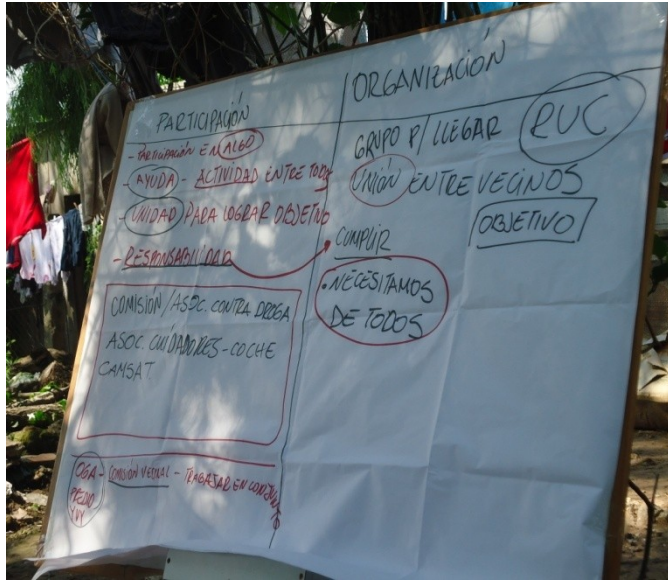 PARTICIPACIÓN
- PARTICIPACIÓN EN ALGO
- AYUDA - ACTIVIDAD ENTRE TODOS
- UNIDAD PARA LOGRAR OBJETIVO
- RESPONSABILIDAD
COMISIÓN / ASOC. CONTRA DROGA
ASOC. CUIDADORES - COCHE
CAMSAT
OGA - COMISIÓN VECINAL - TRABAJAR EN CONJUNTO
YVY
ORGANIZACIÓN
GRUPO P/ LLEGAR
RUC
UNIÓN ENTRE VECINOS
OBJETIVO
CUMPLIR
. NECESITAMOS
DE TODOS